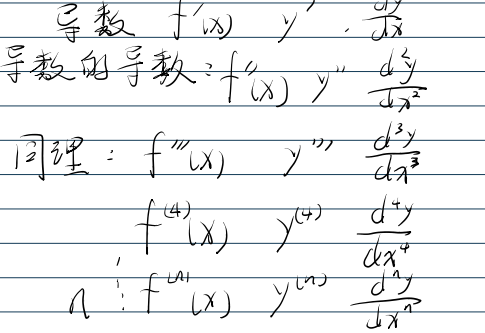 导数 f'(x) y' . dy/dx
导数的导数: f''(x) y'' d²y/dx²
同理: f'''(x) y''' d³y/dx³
f⁽⁴⁾(x) y⁽⁴⁾ d⁴y/dx⁴
n ⋮ f⁽ⁿ⁾(x) y⁽ⁿ⁾ dⁿy/dxⁿ